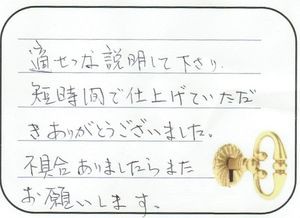 適せつな説明して下さり、
短時間で仕上げていただ
きありがとうございました。
不具合ありましたらまた
お願いします。